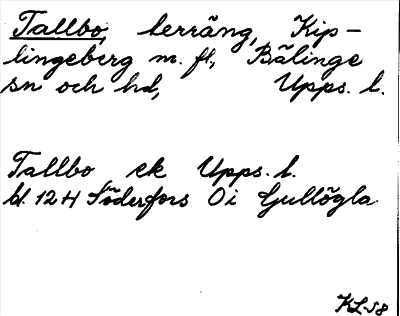 Tallbo, lerräng, Kip-
lingeberg m. fl., Bälinge
sn och hd, Upps. l.
Tallbo ek Upps. l.
bl. 124 Söderfors Oi Gullögla
KL-58